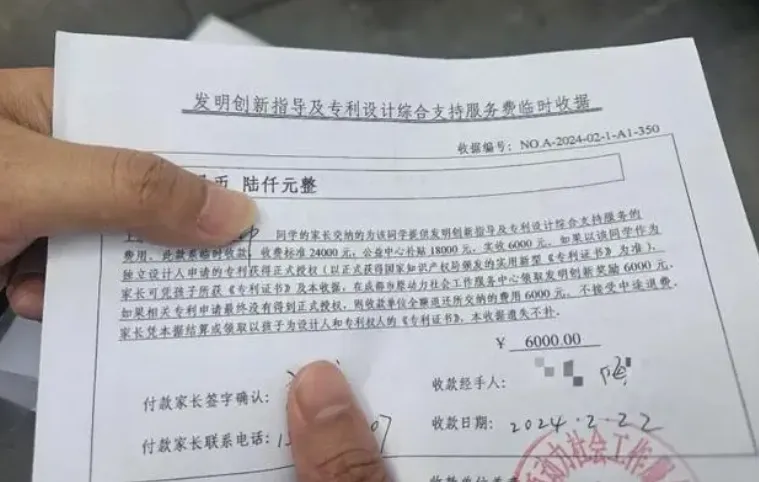 发明创新指导及专利设计综合支持服务费临时收据
收据编号: NO.A-2024-02-1-A1-350
币 陆仟元整
同学的家长交纳的为该同学提供发明创新指导及专利设计综合支持服务的
费用。此款系临时收款，收费标准24000元，公益中心补贴18000元，实收6000元，如果以该同学作为
独立设计人申请的专利获得正式授权（以正式获得国家知识产权局颁发的实用新型《专利证书》为准），
家长可凭孩子所获《专利证书》及本收据，在成都市原动力社会工作服务中心领取发明创新奖励6000元，
如果相关专利申请最终没有得到正式授权，则收款单位全额退还所交纳的费用6000元。不接受中途退费。
家长凭本据结算或领取以孩子为设计人和专利权人的《专利证书》，本收据遗失不补。
¥ 6000.00
付款家长签字确认:
收款经手人:
付款家长联系电话: 1 07
收款日期: 2024.2.22
动力社会工作服